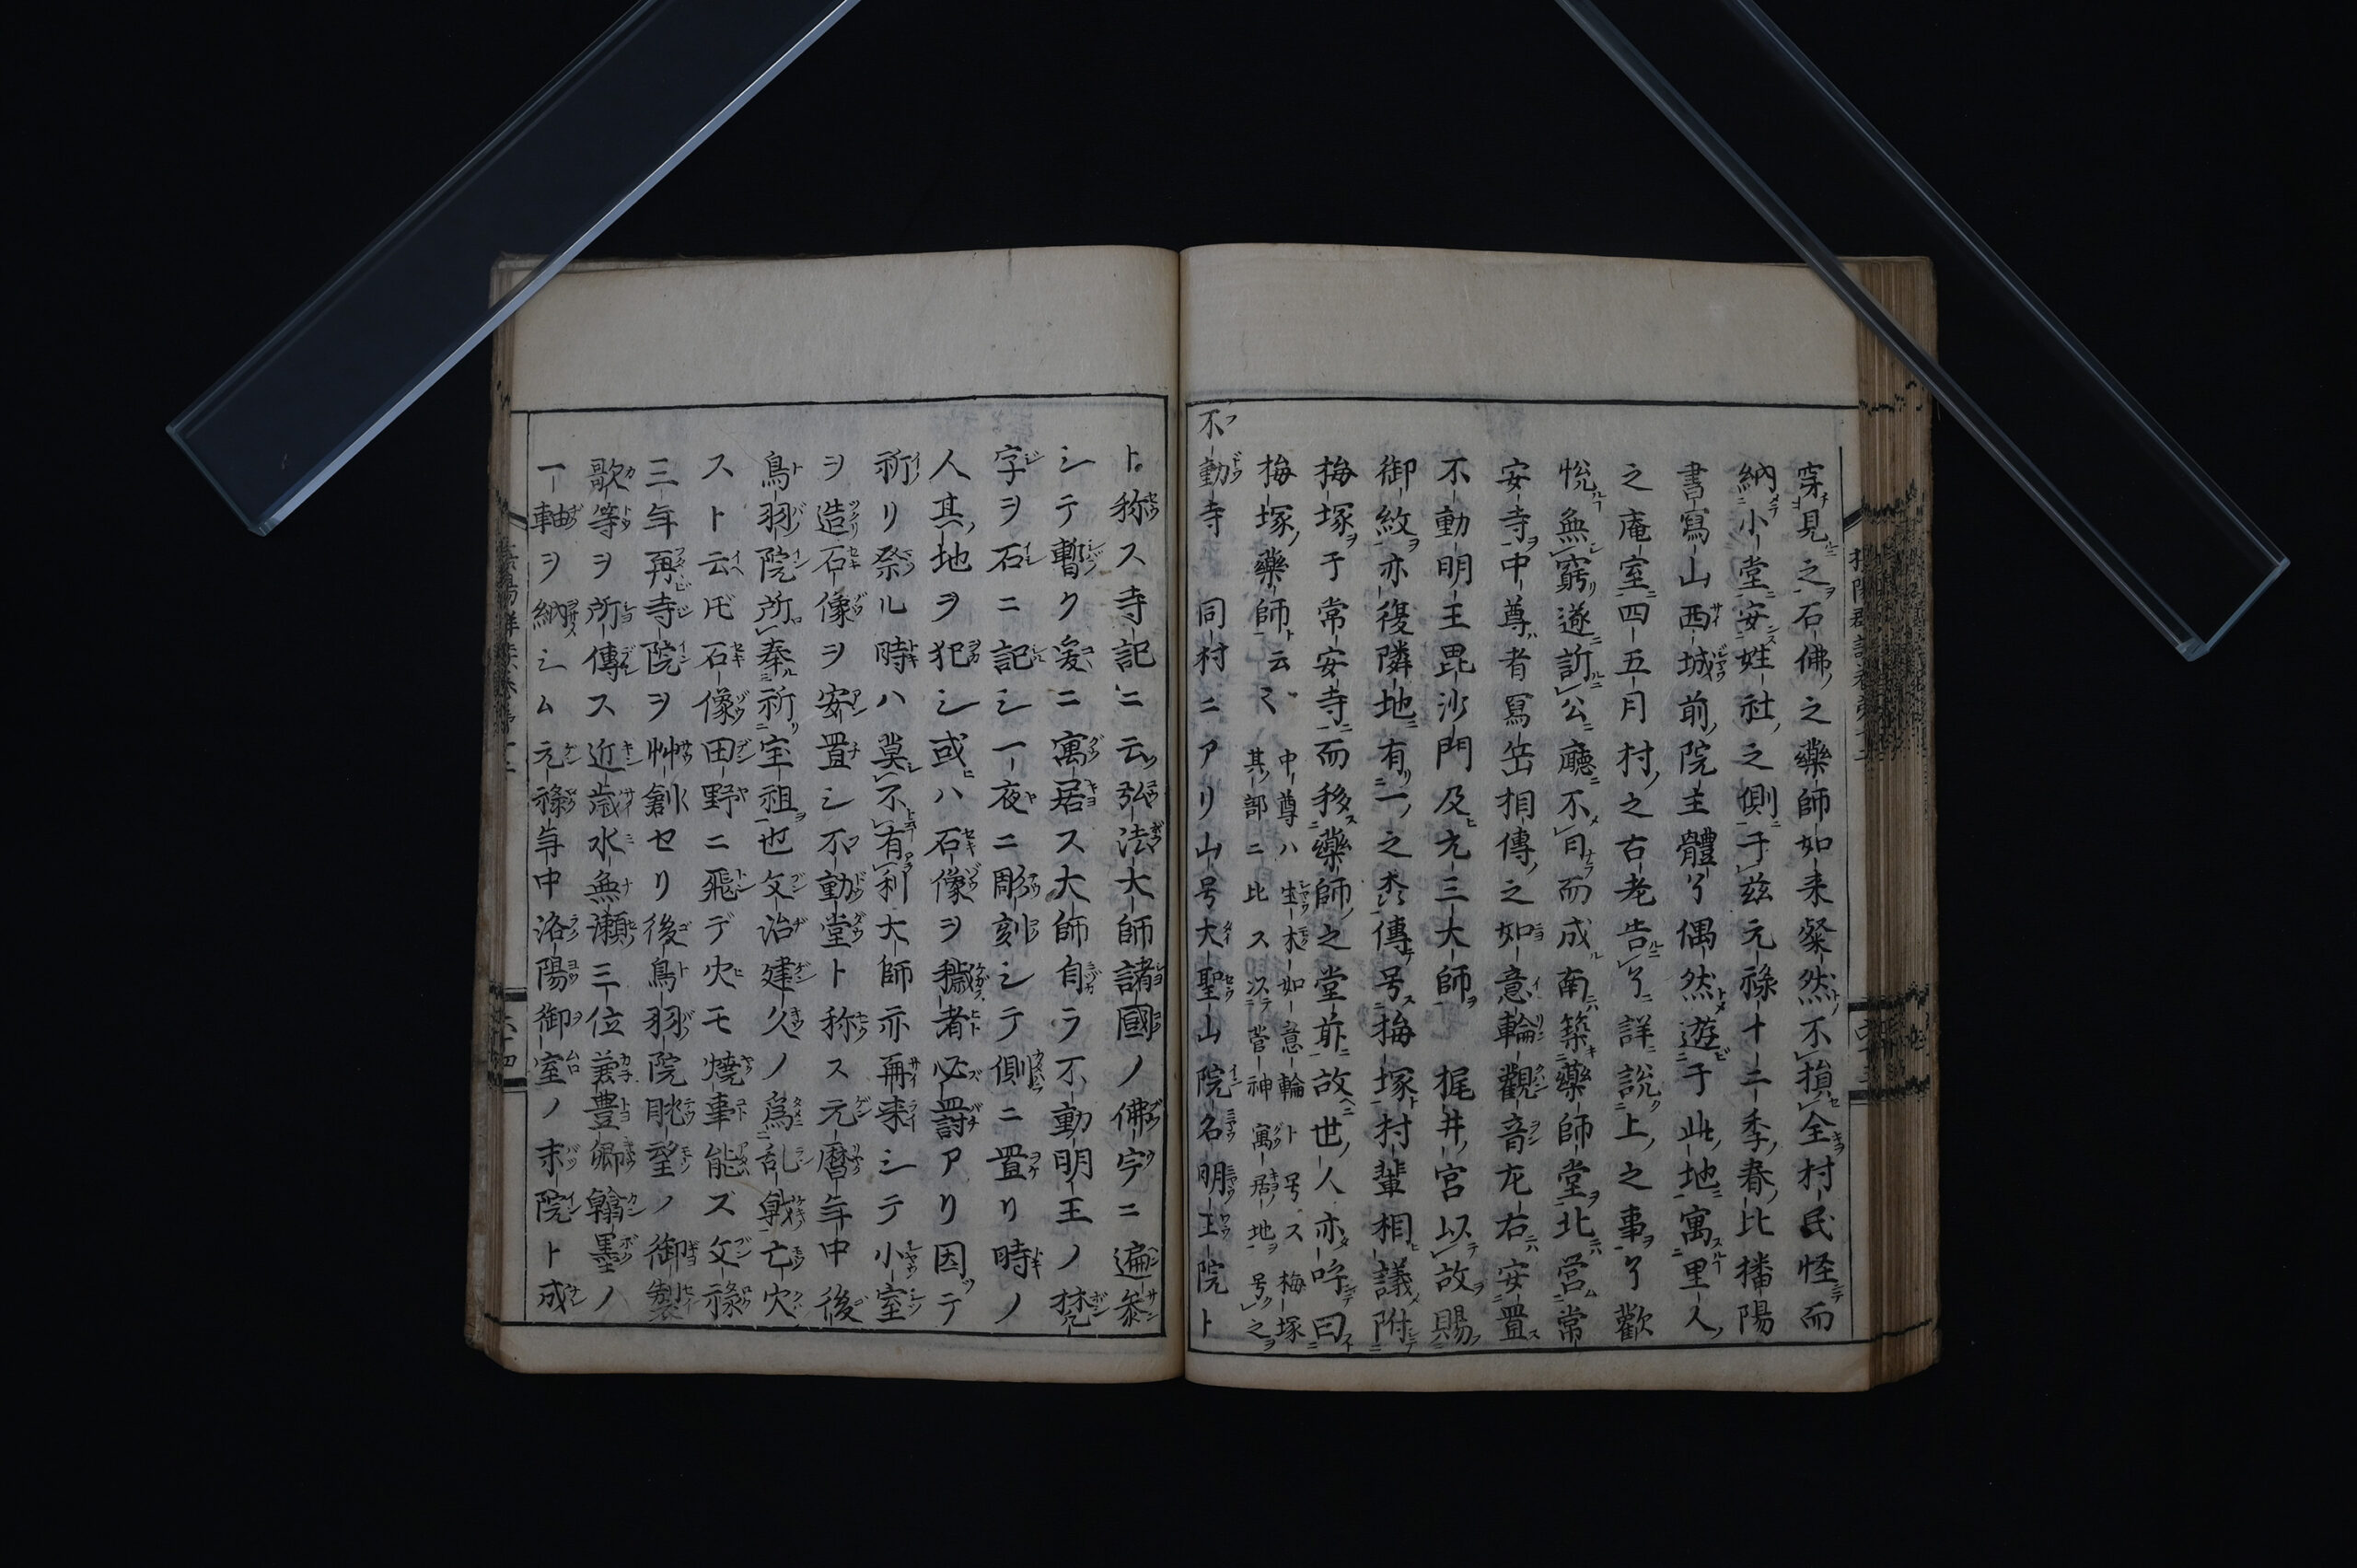 穿見之石佛之藥師如来粲然不損全村民怪而
納小堂安姓社之側于茲元禄十二季春比播陽
書寫山西城前院主體了偶然遊于此地寓里人
之庵室四五月村之古老告了詳説上之事了歡
悦無窮遂訴公廳不日而成南築藥師堂北営常
安寺中尊者冩岳相傳之如意輪觀音左右安置
不動明王毘沙門及元三大師 梶井宮以故賜
御紋亦復隣地有一之杰傳号梅塚村輩相議附
梅塚于常安寺而移藥師之堂前故世人亦呼曰
梅塚藥師云々
中尊ハ生木如意輪ト号ス梅塚
其部ニ比ス次菅神寓居地号之
不動寺 同村ニアリ山号大聖山院名明王院ト
ト称ス寺記ニ云弘法大師諸國ノ佛宇ニ遍参
シテ暫ク爰ニ寓居ス大師自ラ不動明王ノ梵
字ヲ石ニ記シ一夜ニ彫刻シテ側ニ置リ時ノ
人其地ヲ犯シ或ハ石像ヲ穢者必罸アリ因テ
祈リ祭ル時ハ莫不有利大師亦再来シテ小室
ヲ造石像ヲ安置シ不動堂ト称ス元暦年中後
鳥羽院所奉祈宝祖也文治建久ノ為乱亡火
スト云𪜈石像田野ニ飛デ火モ焼事能ズ文禄
三年再寺院ヲ艸創セリ後鳥羽院眺望ノ御製
歌等ヲ所傳ス近歳水無瀬三位兼豊卿翰墨ノ
一軸ヲ納シム元禄年中洛陽御室ノ末院ト成